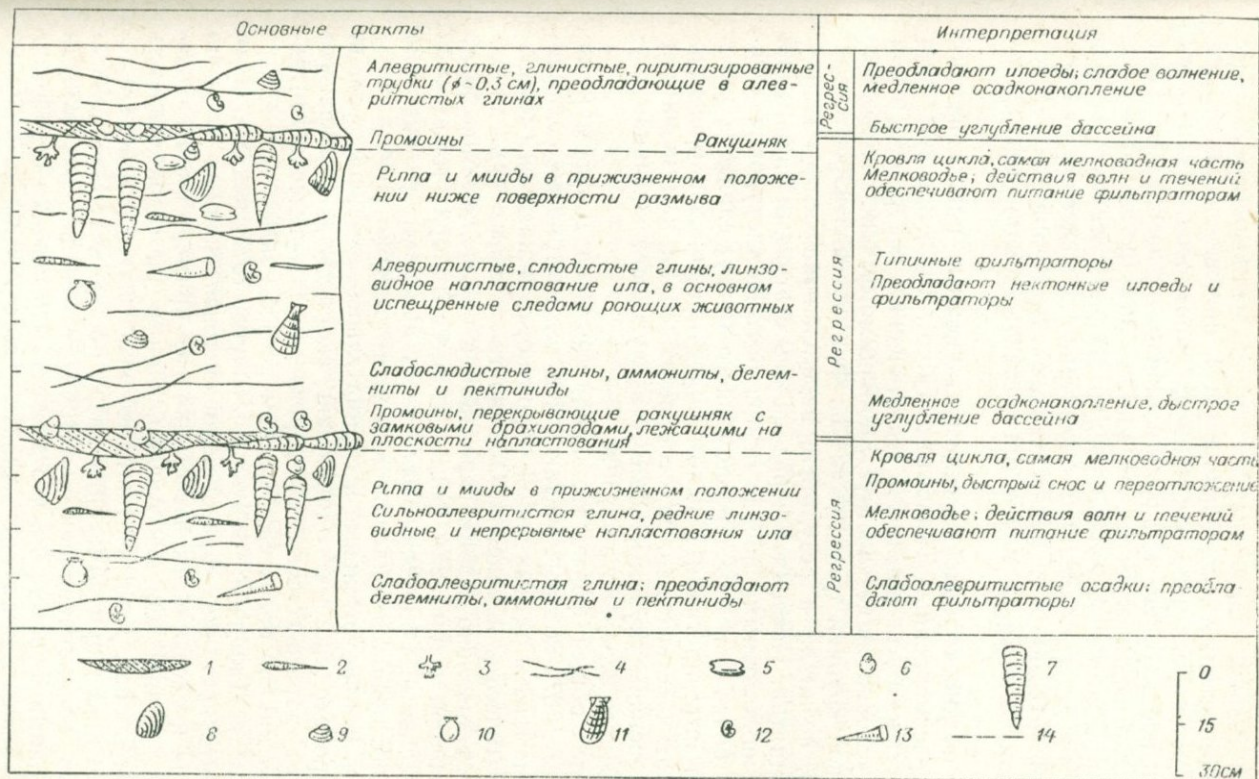 Основные факты
Интерпретация
Алевритистые, глинистые, пиритизированные
трубки (ø~0,3 см), преобладающие в алев-
ритистых глинах
Промоины Ракушняк
Pinna и мииды в прижизненном положе-
нии ниже поверхности размыва
Алевритистые, слюдистые глины, линзо-
видное напластование ила, в основном
испещренные следами роющих животных
Слабослюдистые глины, аммониты, белем-
ниты и пектиниды
Промоины, перекрывающие ракушняк с
замковыми брахиоподами, лежащими на
плоскости напластования
Pinna и мииды в прижизненном положении
Сильноалевритистая глина, редкие линзо-
видные и непрерывные напластования ила
Слабоалевритистая глина; преобладают
белемниты, аммониты и пектиниды
Регрес-
сия
Регрессия
Регрессия
Преобладают илоеды; слабое волнение,
медленное осадконакопление
Быстрое углубление бассейна
Кровля цикла, самая мелководная часть
Мелководье; действия волн и течений
обеспечивают питание фильтраторам
Типичные фильтраторы
Преобладают нектонные илоеды и
фильтраторы
Медленное осадконакопление, быстрое
углубление бассейна
Кровля цикла, самая мелководная часть
Промоины, быстрый снос и переотложение
Мелководье; действия волн и течений
обеспечивают питание фильтраторам
Слабоалевритистые осадки; преобла-
дают фильтраторы
1 2 3 4 5 6 7
8 9 10 11 12 13 14
0
15
30см